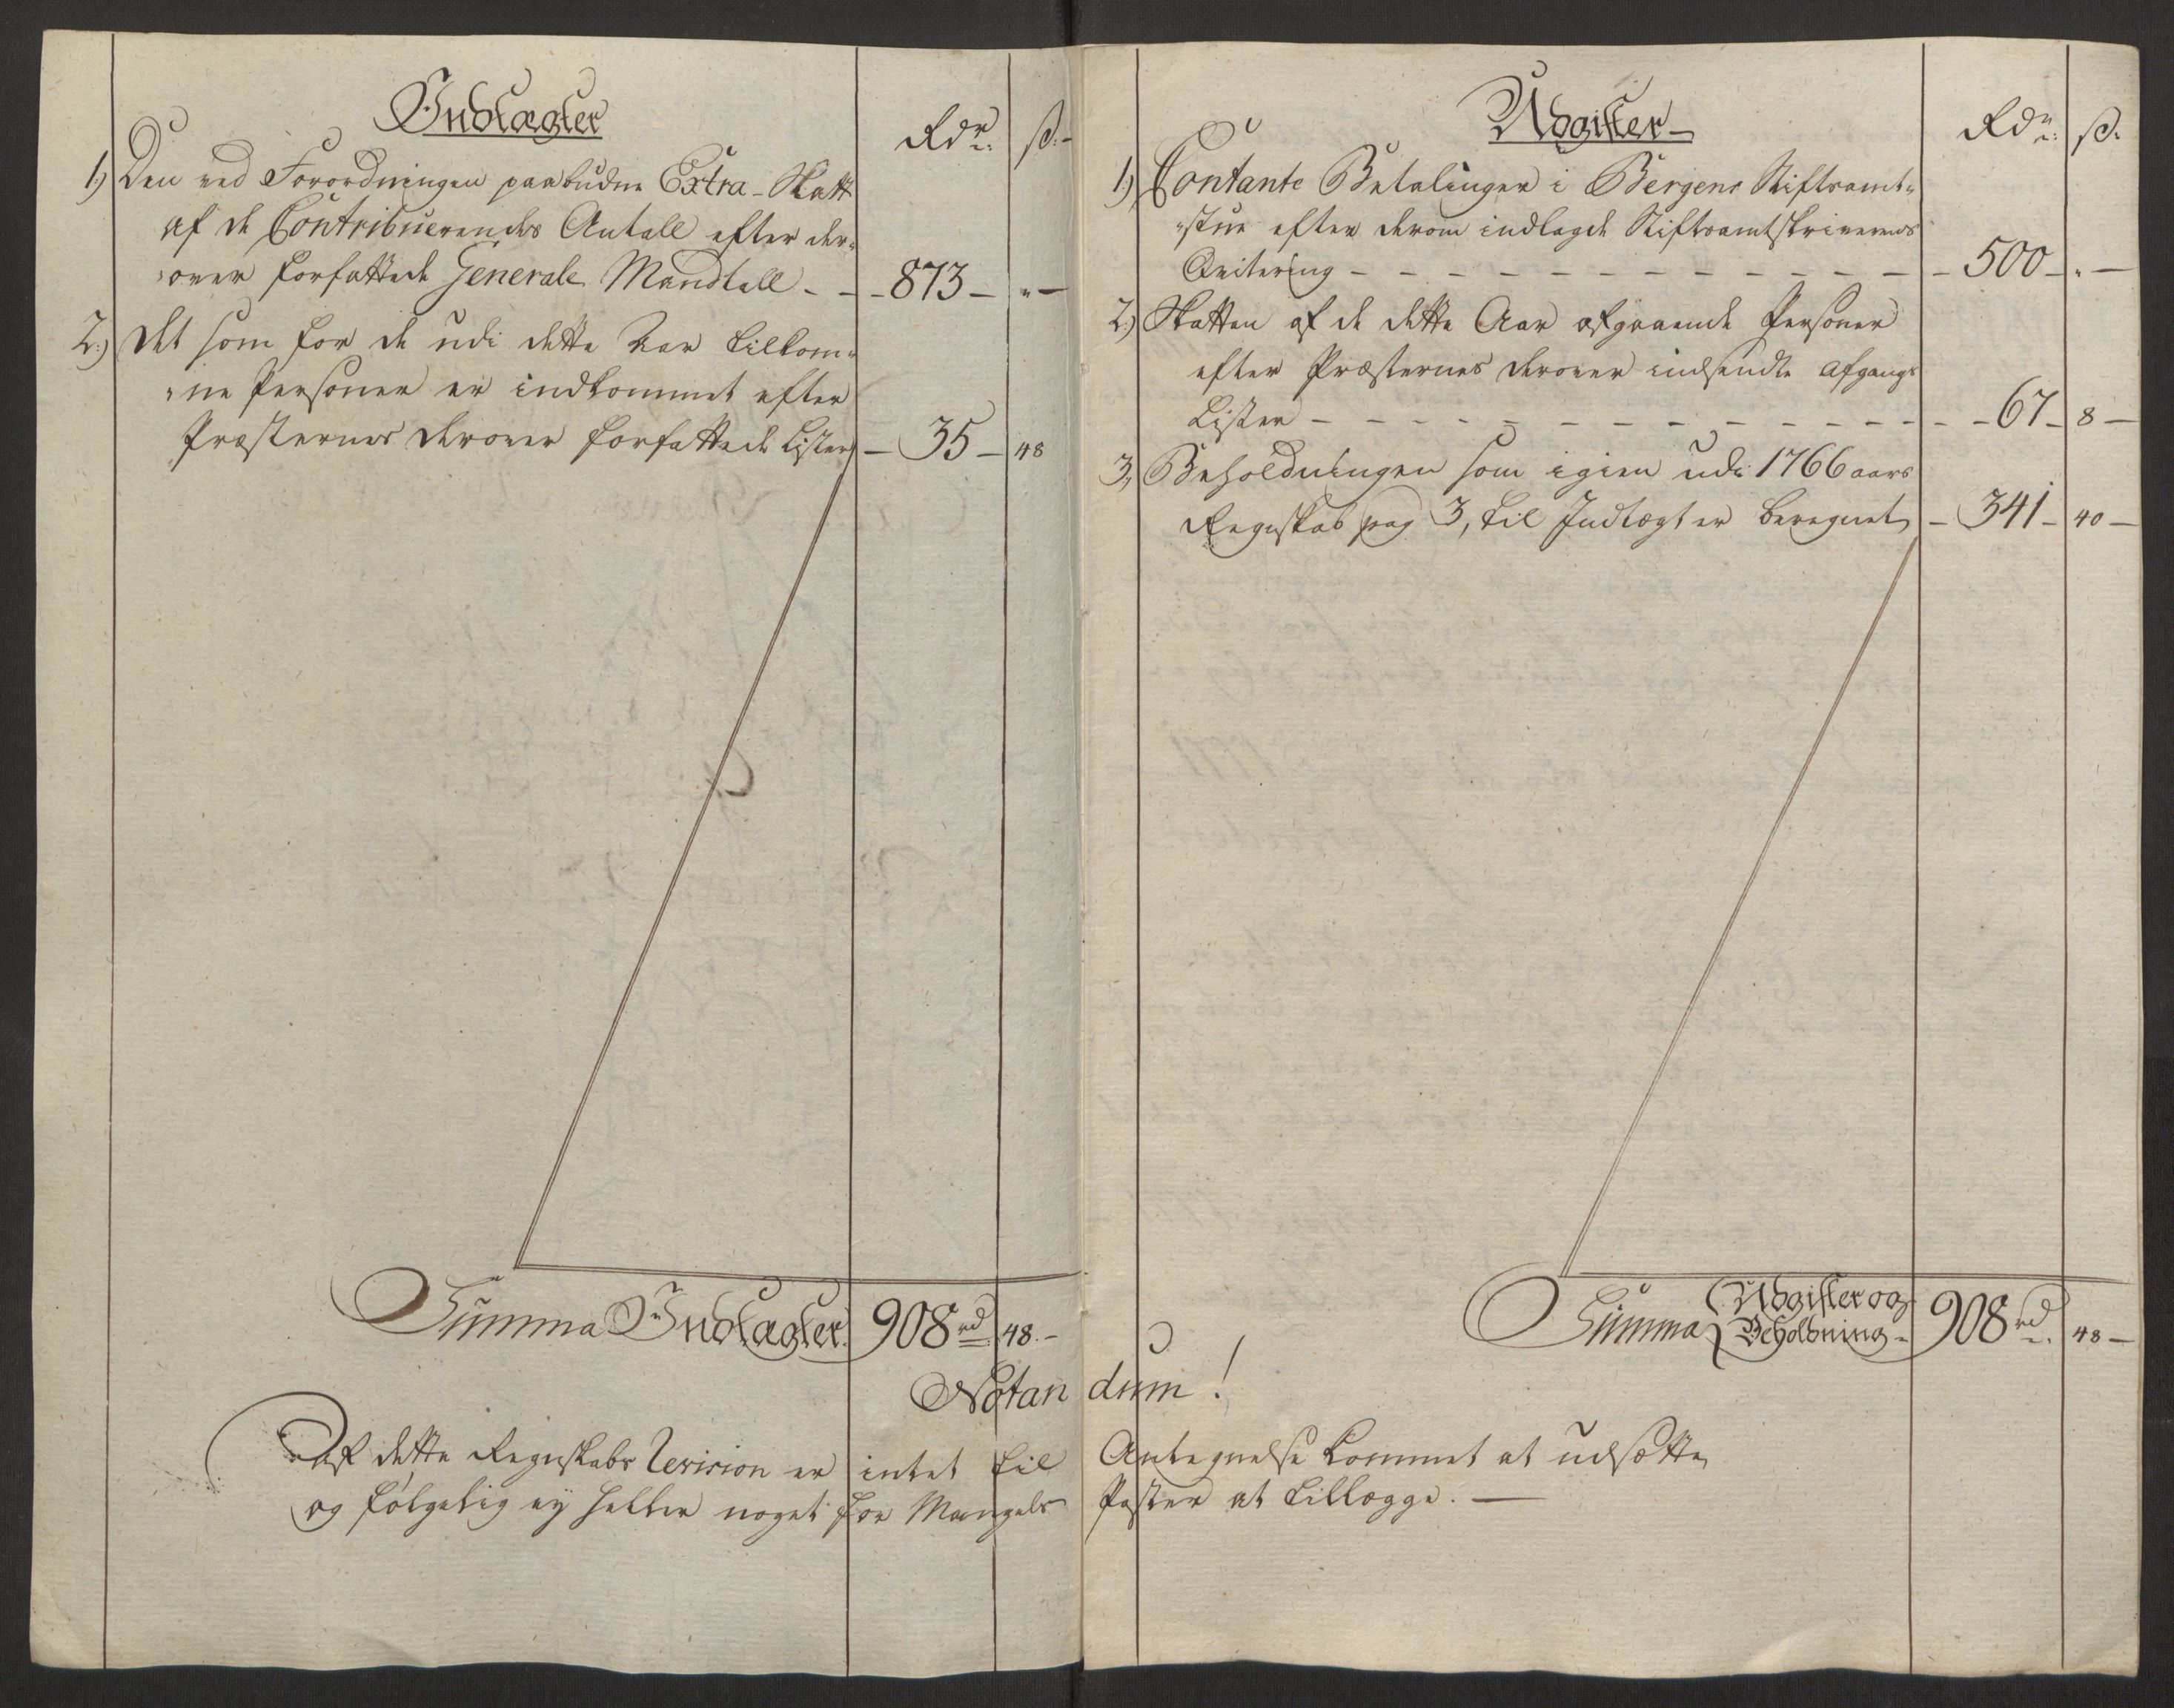 Indtægter
Rdr. ß.
1.) Den ved Forordningen paabudne Extra-Skatt
af de Contribuerendes Antall efter der-
over forfattede Generale Mandtall - - 873 - " -
2.) Det som for de udi dette Aar tilkom-
ne Personer er indkommet efter
Præsternes derover forfattede Lister - 35 - 48
Summa Indtægter 908 rd. 48. -
Udgifter
Rdr. ß.
1.) Contante Betalinger i Bergens Stiftsamt-
stue efter derom indlagde Stiftsamtskriverens
Qvitering - - - - - - - - - - - - 500 - " -
2.) Skatten af de dette Aar afgaaende Personer
efter Præsternes derover indsendte Afgangs
Lister - - - - - - - - - - - - 67 - 8 -
3, Beholdningen som igien udi 1766 aars
Regnskab pag 3, til Indtægt er beregnet - 341 - 40 -
Summa { Udgifter og
Beholdning - 908 rd. 48 -
Notandum!
Af dette Regnskabs Revision er intet til Antegnelse kommet at udsætte,
og følgelig ey heller noget for Mangels Poster at tillægge. -